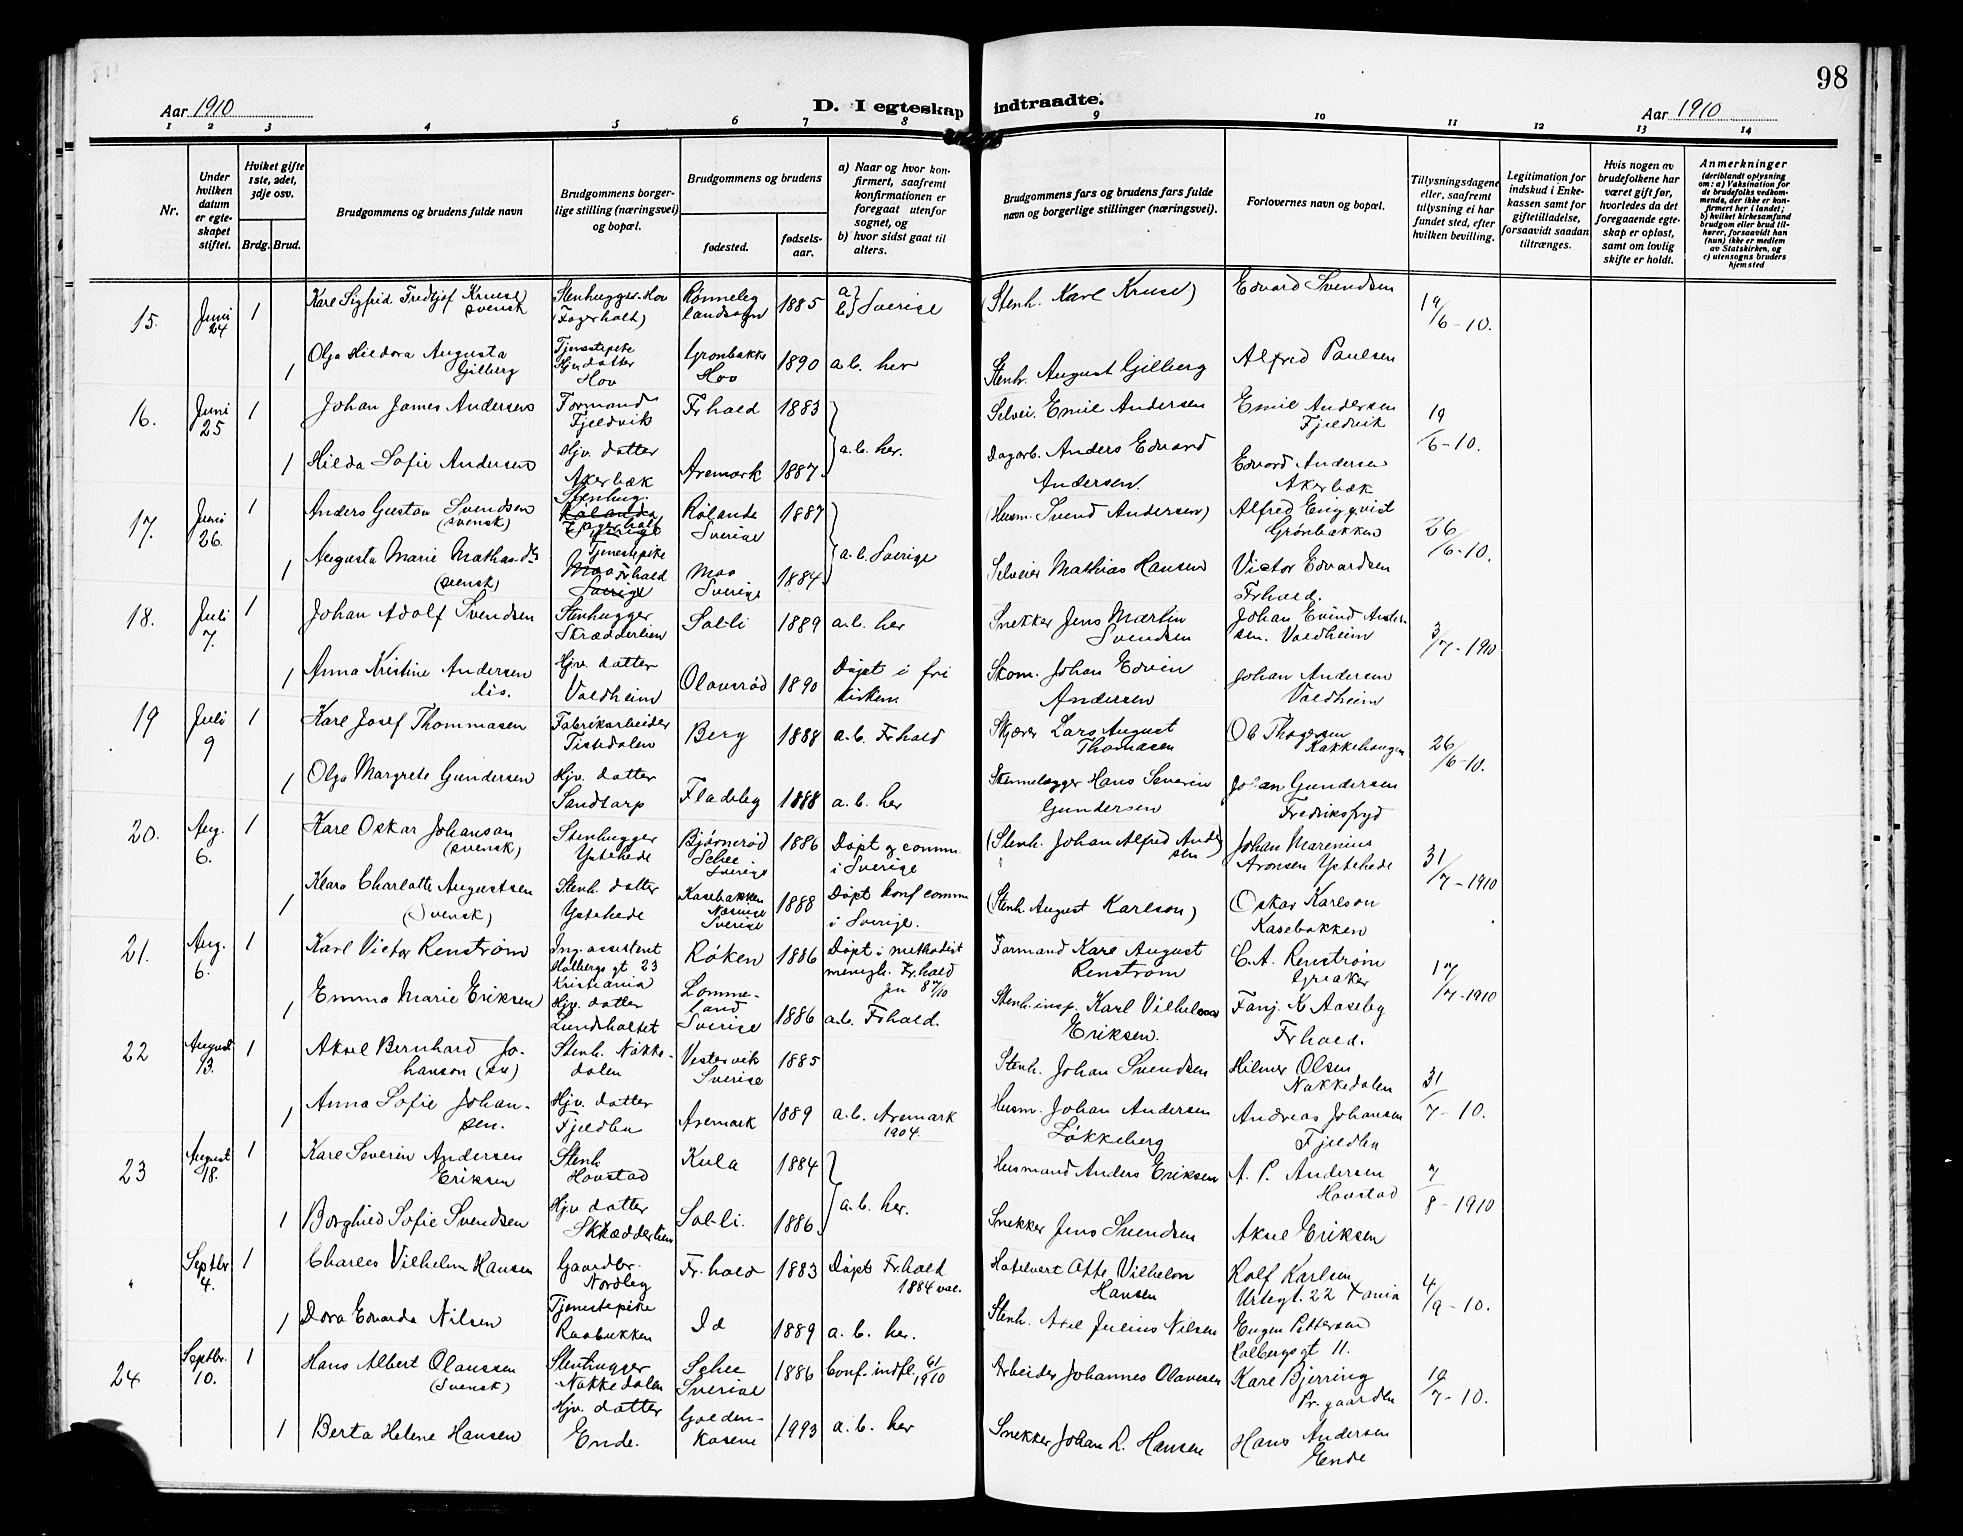 98
Aar 1910
D. I egteskap indtraadte.
Aar 1910
1 2 3 4 5 6 7 8 9 10 11 12 13 14
Nr.
Under hvilken datum er egteskapet stiftet.
Hvilket gifte 1ste, 2det, 3dje osv.
Brdg. Brud.
Brudgommens og brudens fulde navn
Brudgommens borgerlige stilling (næringsvei) og bopæl.
Brudgommens og brudens
fødested.
fødselsaar.
a) Naar og hvor konfirmert, saafremt konfirmationen er foregaat utenfor sognet, og
b) hvor sidst gaat til alters.
Brudgommens fars og brudens fars fulde navn og borgerlige stillinger (næringsvei).
Forlovernes navn og bopæl.
Tillysningsdagene eller, saafremt tillysning ei har fundet sted, efter hvilken bevilling.
Legitimation for indskud i Enkekassen samt for giftetilladelse, forsaavidt saadan tiltrænges.
Hvis nogen av brudefolkene har været gift før, hvorledes da det foregaaende egteskap er opløst, samt om lovlig skifte er holdt.
Anmerkninger
(deriblandt oplysning om: a) Vaksination for de brudefolks vedkommende, der ikke er konfirmert her i landet; b) hvilket kirkesamfund brudgom eller brud tilhører, forsaavidt han (hun) ikke er medlem av Statskirken, og c) utensogns bruders hjemsted
15. Juni 24 1 Karl Sigfrid Fredtjof Kruse svensk Stenhugger Hov (Fagerholt) Rönneleg landsogn 1885 a) b) Sverige (Stenh. Karl Kruse) Edvard Svendsen 19/6-10.
1 Olga Hildora Augusta Gilberg Tjenestepike Hjv datter Hov Grønbakke Hov 1890 a.b. her Stenh. August Gilberg Alfred Paulsen
16. Juni 25 1 Johan James Andersen Formand Fjeldvik Frhald 1883 a.b. her. Selvei. Emil Andersen Emil Andersen Fjeldvik 19/6-10.
1 Hilda Sofie Andersen Hjv. datter Akerbæk Aremark 1887 Dagarb. Anders Edvard Andersen. Edvard Andersen Akerbæk
17. Juni 26. 1 Anders Gustav Svendsen (svensk) Stenhug. Rølanda Sverige 1887 a.b. Sverige (Husm. Svend Andersen) Alfred Engqvist Grønbakken 26/6-10.
1 Augusta Marie Mathiasdtr (svensk) Tjenestepike Moo Frhald Sverige Moo Sverige 1884 Selveier Mathias Hansen Victor Edvardsen Frhald.
18. Juli 7. 1 Johan Adolf Svendsen Stenhugger Skrædderlien Sol-li 1889 a.b. her Snekker Jens Martin Svendsen Johan Evind Andersen. Valdheim 3/7-1910
1 Anna Kristine Andersen dis. Hjv. datter Valdheim Olavsrød 1890 Døpt i frikirken Skom. Johan Edvin Andersen Johan Andersen Valdheim
19 Juli 9 1 Karl Josef Thommasen Fabrikarbeider Tistedalen Berg 1888 a.b. Frhald Skjærer Lars August Thomasen Ole Thogersen Kakkehaugen 26/6-10.
1 Olga Margrete Gundersen Hjv. datter Sandtorp Fladeby 1888 a.b. her Stennelægger Hans Severin Gundersen Johan Gundersen Fredriksfryd
20. Aug. 6. 1 Karl Oskar Johanson (svensk) Stenhugger Ystehede Bjørnerød Schee Sverige 1886 Døpt og comm. i Sverige (Stenh. Johan Alfred Andersen Johan Marenius Aronsen Ystehede 31/7-1910
1 Klara Charlotte Augustsen (Svensk) Stenh. datter Ystehede Kasebakken Næsinge Sverige 1888 Døpt konf comm i Sverige. (Stenh. August Karlson) Oskar Karlson Kasebakken
21. Aug. 6. 1 Karl Victor Renstrøm Ing. assistent Holbergs gt 23 Kristiania Røken 1886 Døpt i methodist menigh. Frhald Formand Karl August Renstrøm C.A. Renstrøm Greaker 17/7-1910
1 Emma Marie Eriksen Hjv. datter Lundholtet Lommeland Sverige 1886 a.b. Frhald. Stenh. insp. Karl Vilhelm Eriksen. Fanj. K Aaseby Frhald.
22 August 13. 1 Aksel Bernhard Johanson (sv) Stenh. Nakkedalen Vestervik Sverige 1885 Stenh. Johan Svendsen Hilmer Olsen Nakkedalen 31/7-10.
1 Anna Sofie Johansen. Hjv. datter Fjeldbu Aremark 1889 a.b. Aremark 1904. Husm. Johan Andersen Løkkeberg Andreas Johansen Fjeldbu
23 August 18. 1 Karl Severin Andersen Eriksen Stenh Hovstad Kula 1884 a.b. her. Husmand Anders Eriksen A. P. Andersen Hovstad 7/8-1910
1 Borghild Sofie Svendsen Hjv datter Skrædderlien Sol-li. 1886. Snekker Jens Svendsen Aksel Eriksen
" Septbr. 4. 1 Charles Vilhelm Hansen Gaardbr. Nordby Fr.hald 1883 Døpt Fr.hald 1884 vac. Hotelvert Otto Vilhelm Hansen Rolf Karlsen Urtegt. 22 Xania 4/9-10.
1 Dora Edvarda Nilsen Tjenestepike Raabækken Id 1889 a.b. her. Stenh. Axel Julius Nilsen Eugen Pettersen Holbergsgt 11.
24 Septbr. 10. 1 Hans Albert Olaussen (Svensk) Stenhugger Nakkedalen Schee Sverige 1886 Conf. indfl. 61/1910 Arbeider Johannes Olavesen Karl Bjerring Pr.gaarden 19/7-10.
1 Berta Helene Hansen Hjv. datter Ende. Goldenkasene 1993 a.b. her Snekker Johan L. Hansen Hans Andersen Ende